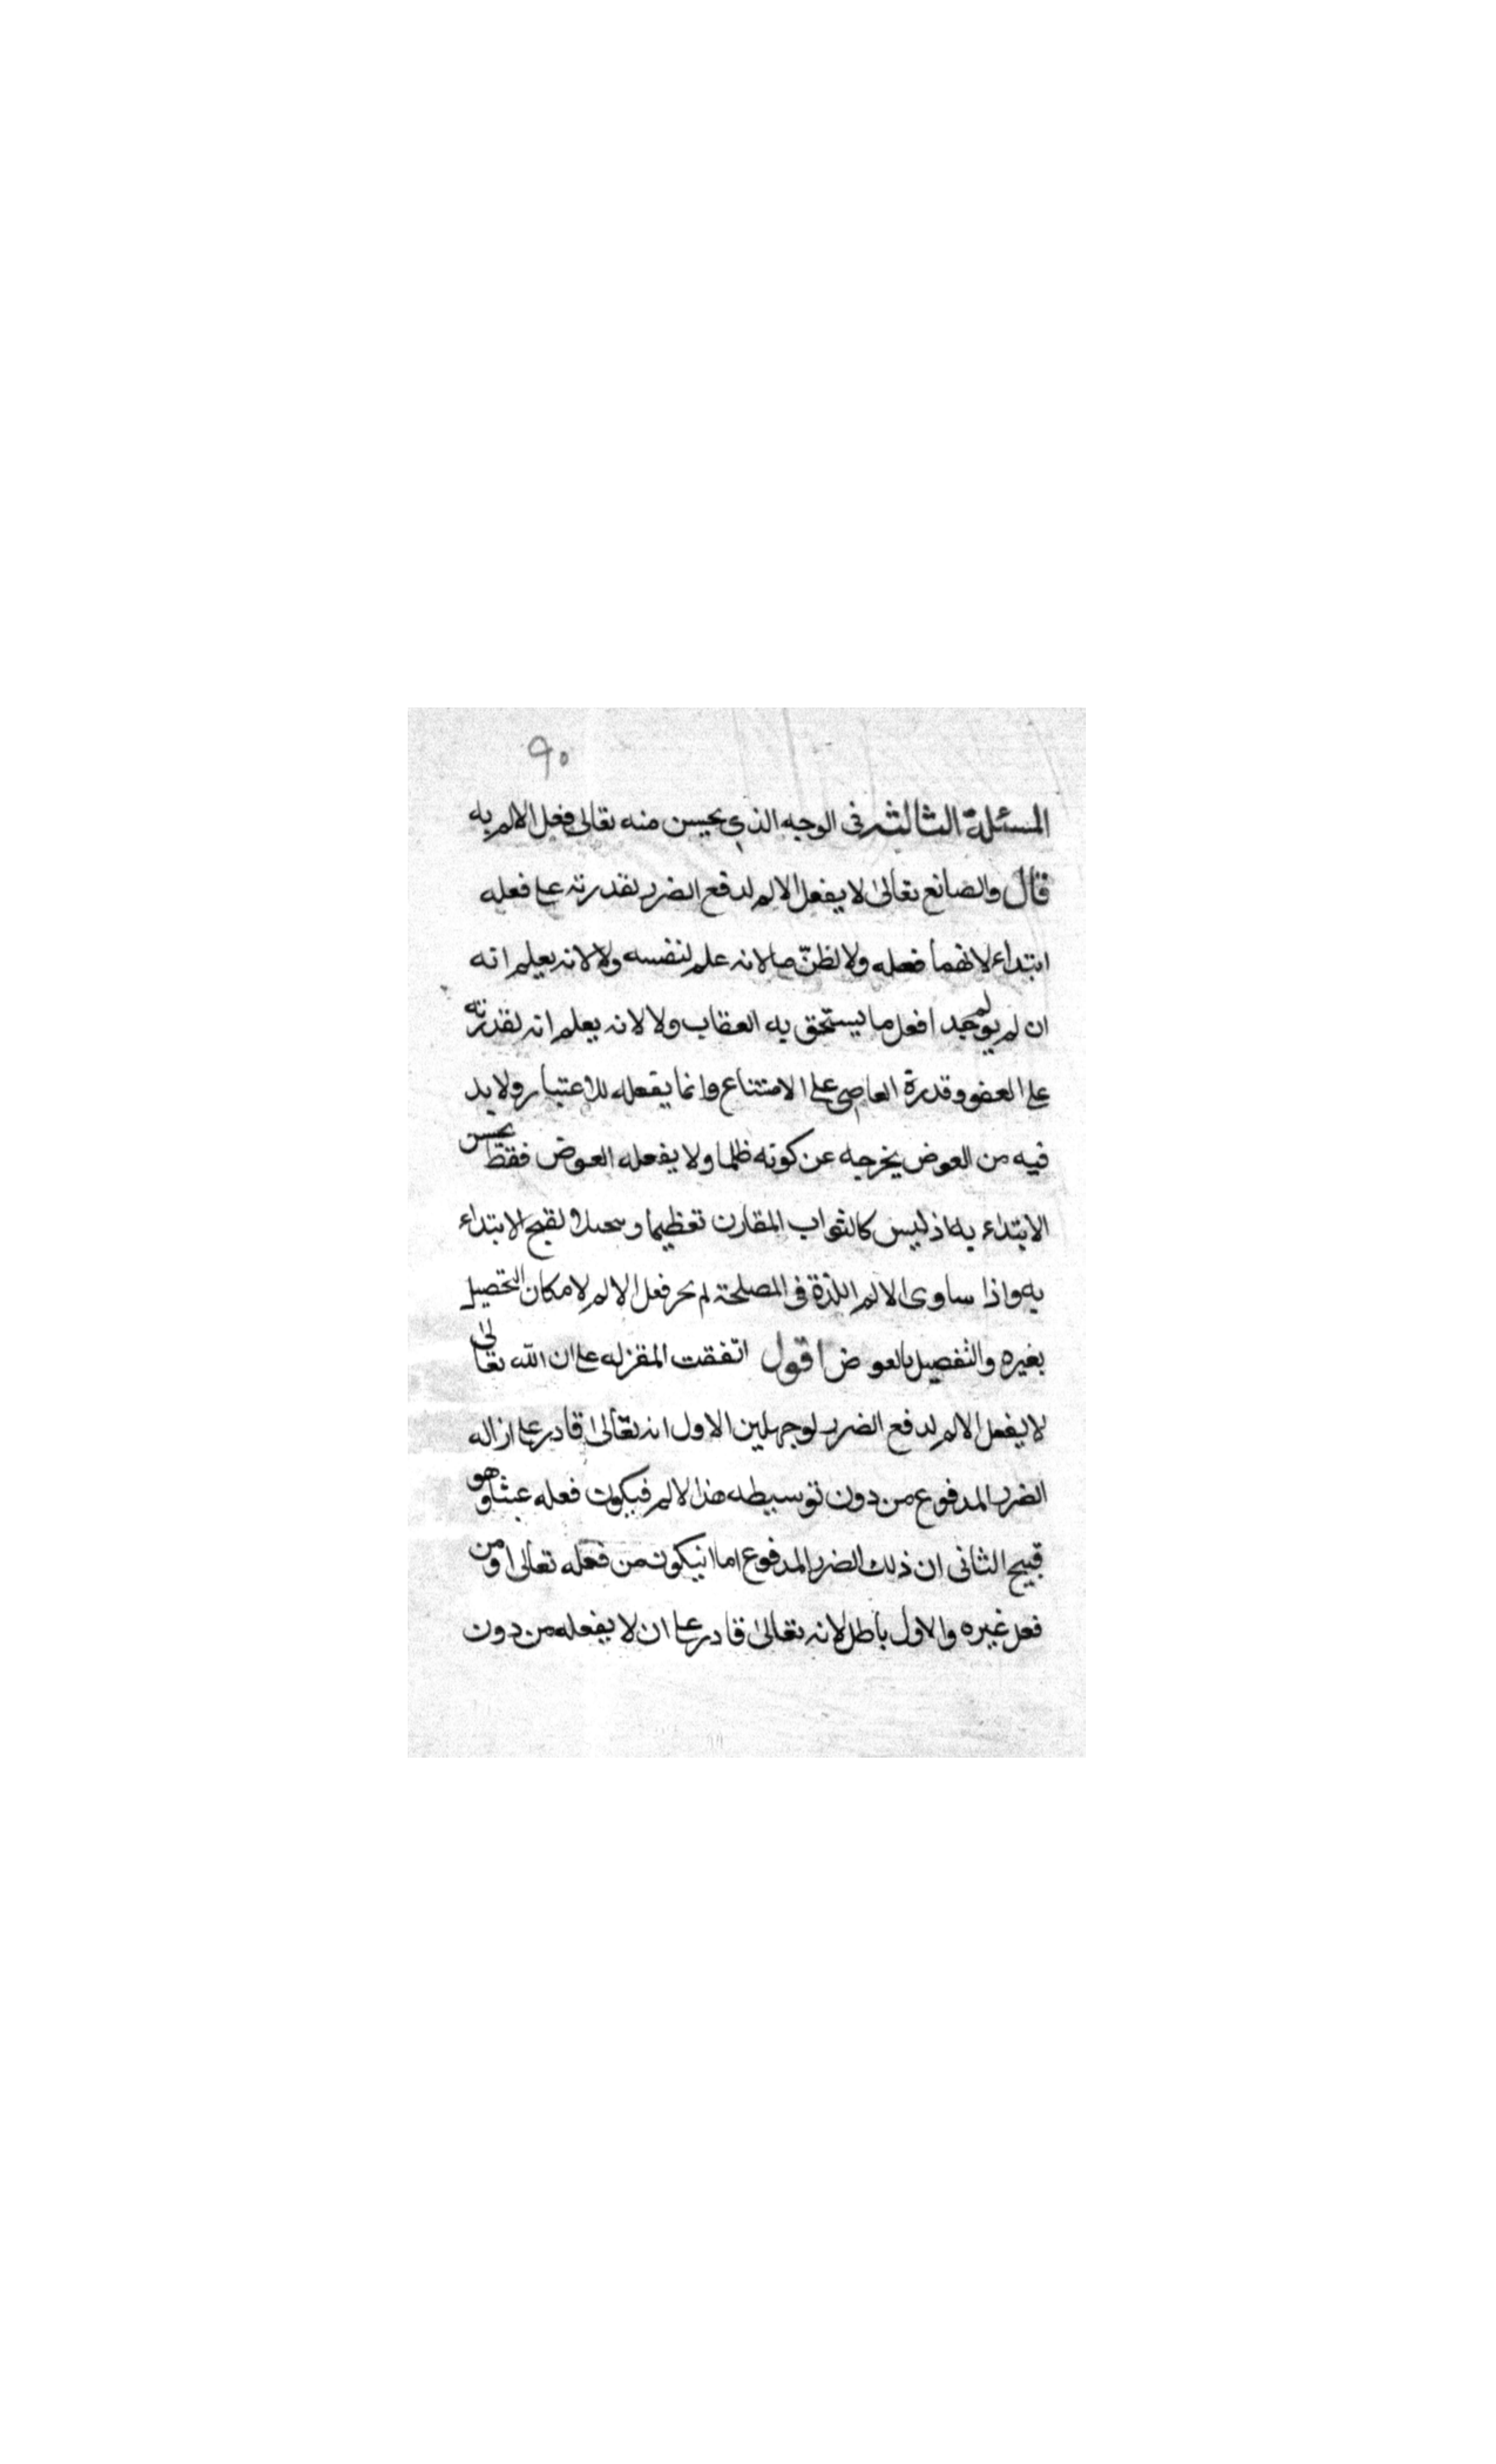 ٩٠
المسئلة الثالثه فى الوجه الذي يحسن منه تعالى فعل الالم به
قال والصانع تعالىٰ لا يفعل الالم لدفع الضرر لقدرته على فعله
ابتداء لانهما فعله ولا لظنّ ما لانه علم لنفسه ولا لانه يعلم انه
ان لم يولم جد افعل ما يستحق به العقاب ولا لانه يعلم انه لقدرته
على العفو وقدرة العاصي على الامتناع وانما يفعله للاعتبار ولا بد
فيه من العوض يخرجه عن كونه ظلما ولا يفعله العوض فقط يحسن
الابتداء به اذ ليس كالثواب المقارن تعظيما لقبح الابتداء
به واذا ساوى الالم اللذة فى المصلحة لم يحز فعل الالم لامكان التحصيل
بغيره والتفصيل بالعوض اقول اتفقت المقزله على ان الله تعالىٰ
لا يفعل الالم لدفع الضرر لوجهين الاول انه تعالىٰ قادر على ازاله
الضرر المدفوع من دون توسيطه هذا الالم فيكون فعله عبثا وهو
قبيح الثانى ان ذلك الضرر المدفوع اما انيكون من فعله تعالىٰ او من
فعل غيره والاول باطل لانه تعالىٰ قادر على ان لا يفعله من دون